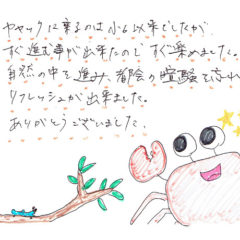 カヤックに乗るのは小6以来でしたが、
すぐ進む事が出来たので すぐ楽めました。
自然の中を進み、都会の喧騒を忘れ
リフレッシュが出来ました。
ありがとうございました。